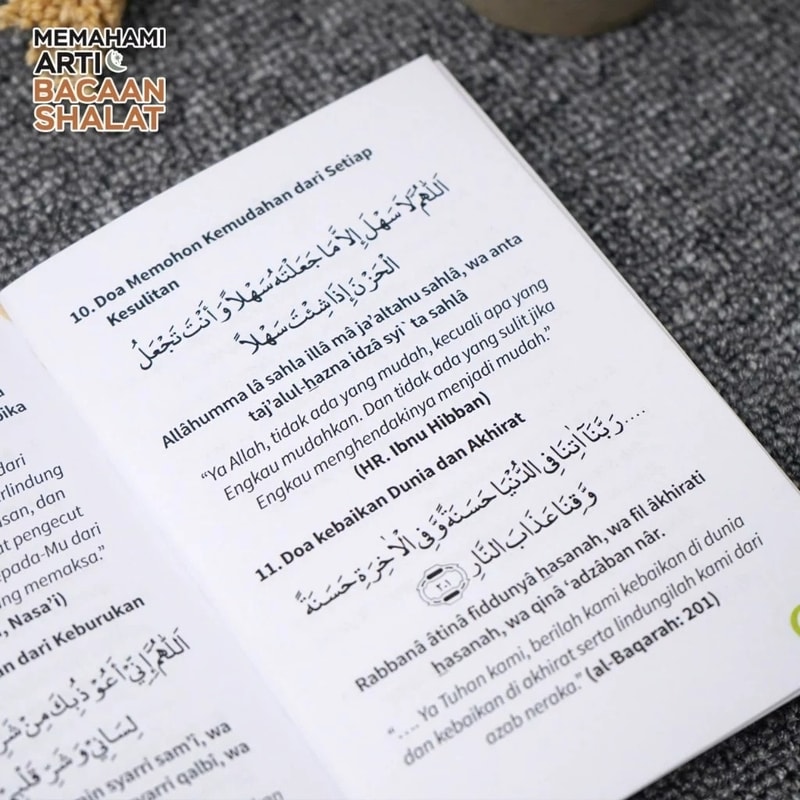 MEMAHAMI
ARTI
BACAAN
SHALAT
dari
erlindung
san, dan
t pengecut
pada-Mu dari
ng memaksa.”
, Nasa'i)
n dari Keburukan
اَللّٰهُمَّ اِنِّيْ اَعُوْذُبِكَ مِنْ شَرِّ
لِسَانِيْ وَ شَرِّ
min syarri sam’î, wa
syarri qalbî, wa
10. Doa Memohon Kemudahan dari Setiap
Kesulitan
اَللّٰهُمَّ لاَ سَهْلَ إِلاَّ مَا جَعَلْتَهُ سَهْلاً وَ أَنْتَ تَجْعَلُ
الْحَزْنَ إِذَا شِئْتَ سَهْلاً
Allâhumma lâ sahla illâ mâ ja’altahu sahlâ, wa anta
taj’alul-hazna idzâ syi` ta sahlâ
“Ya Allah, tidak ada yang mudah, kecuali apa yang
Engkau mudahkan. Dan tidak ada yang sulit jika
Engkau menghendakinya menjadi mudah.”
(HR. Ibnu Hibban)
11. Doa kebaikan Dunia dan Akhirat
.... رَبَّنَآ اٰتِنَا فِى الدُّنْيَا حَسَنَةً وَّ فِى الْاٰخِرَةِ حَسَنَةً
وَّ قِنَا عَذَابَ النَّارِ ٢٠١
Rabbanâ âtinâ fiddunyâ hasanah, wa fil âkhirati
hasanah, wa qinâ ‘adzâban nâr.
“.... Ya Tuhan kami, berilah kami kebaikan di dunia
dan kebaikan di akhirat serta lindungilah kami dari
azab neraka.” (al-Baqarah: 201)